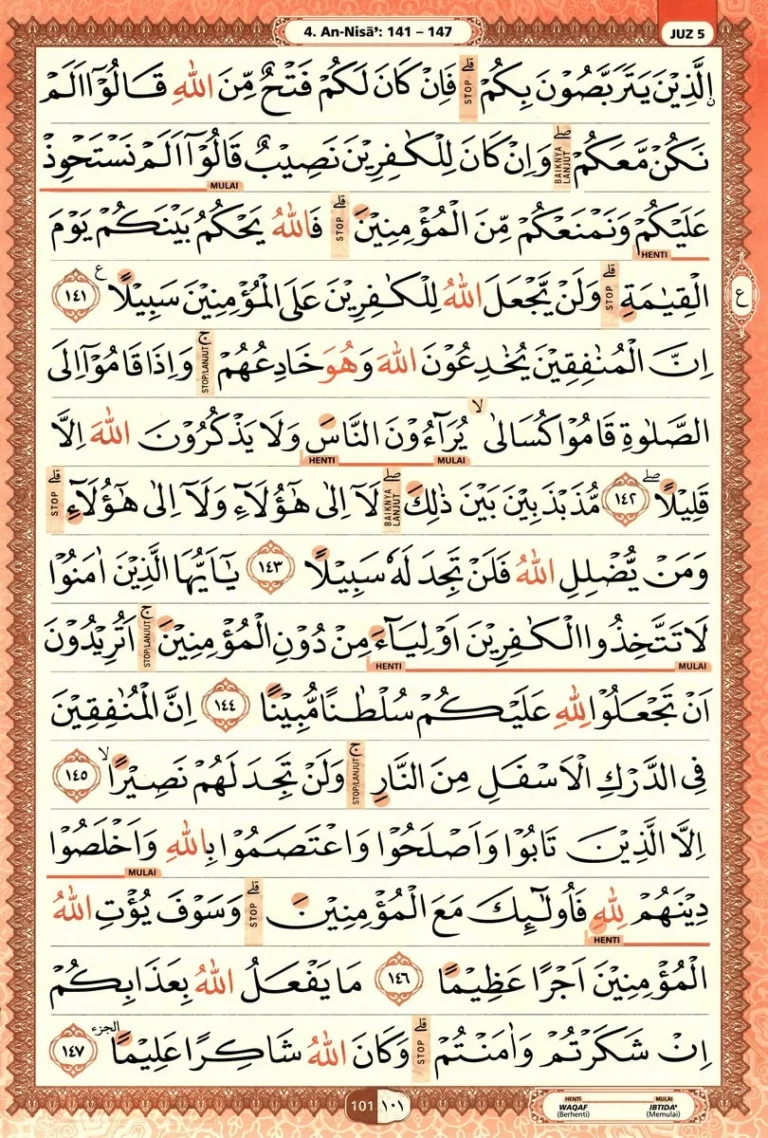 4. An-Nisā': 141 – 147
JUZ 5
اِلَّذِيْنَ يَتَرَبَّصُوْنَ بِكُمْۗ STOP فَاِنْ كَانَ لَكُمْ فَتْحٌ مِّنَ اللّٰهِ قَالُوْٓا اَلَمْ
نَكُنْ مَّعَكُمْۖ BAIKNYA LANJUT وَاِنْ كَانَ لِلْكٰفِرِيْنَ نَصِيْبٌ قَالُوْٓا اَلَمْ نَسْتَحْوِذْ
MULAI
عَلَيْكُمْ وَنَمْنَعْكُمْ مِّنَ الْمُؤْمِنِيْنَۗ STOP فَاللّٰهُ يَحْكُمُ بَيْنَكُمْ يَوْمَ
HENTI
الْقِيٰمَةِۗ STOP وَلَنْ يَّجْعَلَ اللّٰهُ لِلْكٰفِرِيْنَ عَلَى الْمُؤْمِنِيْنَ سَبِيْلًا ع ١٤١
ع
اِنَّ الْمُنٰفِقِيْنَ يُخٰدِعُوْنَ اللّٰهَ وَهُوَ خَادِعُهُمْۚ STOP/LANJUT وَاِذَا قَامُوْٓا اِلَى
الصَّلٰوةِ قَامُوْا كُسَالٰىۙ يُرَاۤءُوْنَ النَّاسَ وَلَا يَذْكُرُوْنَ اللّٰهَ اِلَّا
MULAI HENTI
قَلِيْلًاۖ ١٤٢ مُّذَبْذَبِيْنَ بَيْنَ ذٰلِكَۖ BAIKNYA LANJUT لَآ اِلٰى هٰٓؤُلَاۤءِ وَلَآ اِلٰى هٰٓؤُلَاۤءِۗ STOP
وَمَنْ يُّضْلِلِ اللّٰهُ فَلَنْ تَجِدَ لَهٗ سَبِيْلًا ١٤٣ يٰٓاَيُّهَا الَّذِيْنَ اٰمَنُوْا
لَا تَتَّخِذُوا الْكٰفِرِيْنَ اَوْلِيَاۤءَ مِنْ دُوْنِ الْمُؤْمِنِيْنَۚ STOP/LANJUT اَتُرِيْدُوْنَ
MULAI HENTI
اَنْ تَجْعَلُوْا لِلّٰهِ عَلَيْكُمْ سُلْطٰنًا مُّبِيْنًا ١٤٤ اِنَّ الْمُنٰفِقِيْنَ
فِى الدَّرْكِ الْاَسْفَلِ مِنَ النَّارِۚ STOP/LANJUT وَلَنْ تَجِدَ لَهُمْ نَصِيْرًاۙ ١٤٥
اِلَّا الَّذِيْنَ تَابُوْا وَاَصْلَحُوْا وَاعْتَصَمُوْا بِاللّٰهِ وَاَخْلَصُوْا
MULAI
دِيْنَهُمْ لِلّٰهِ فَاُولٰۤىِٕكَ مَعَ الْمُؤْمِنِيْنَۗ STOP وَسَوْفَ يُؤْتِ اللّٰهُ
HENTI
الْمُؤْمِنِيْنَ اَجْرًا عَظِيْمًا ١٤٦ مَا يَفْعَلُ اللّٰهُ بِعَذَابِكُمْ
اِنْ شَكَرْتُمْ وَاٰمَنْتُمْۗ STOP وَكَانَ اللّٰهُ شَاكِرًا عَلِيْمًا الجزء ١٤٧
101 ١٠١
HENTI MULAI
WAQAF IBTIDA'
(Berhenti) (Memulai)